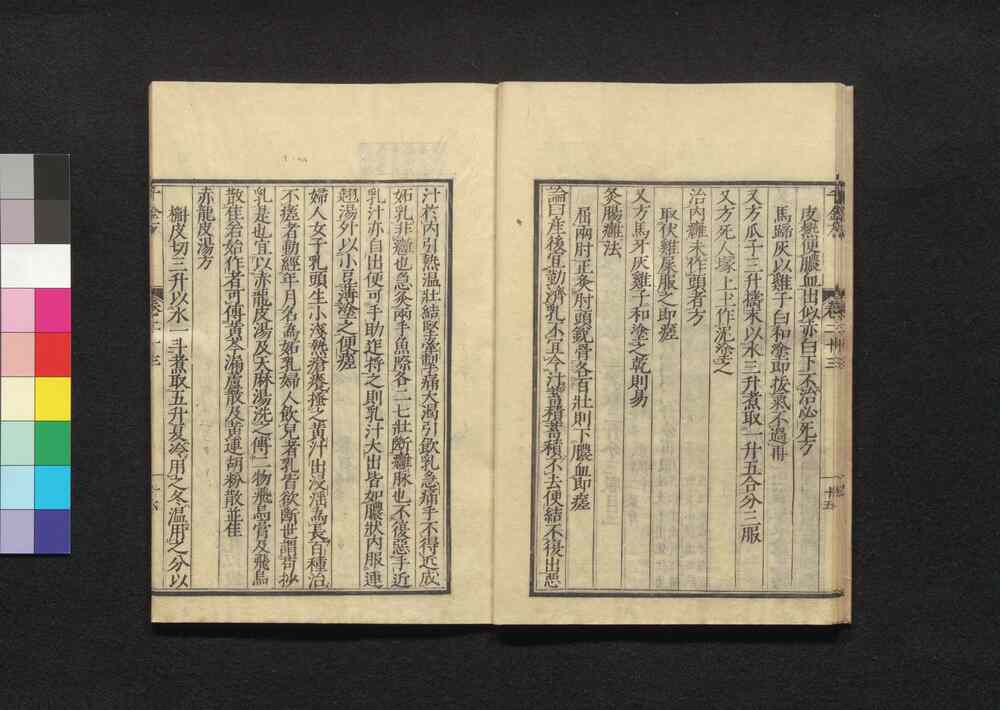 皮熱便膿血出似赤白下不治必死方
馬蹄灰以雞子白和塗即拔氣不過再
又方瓜子三升擣末以水三升煮取一升五合分三服
又方死人塚上土作泥塗之
治內癰未作頭者方
取伏雞屎服之即瘥
又方馬牙灰雞子和塗之乾則易
灸腸癰法
屈兩肘正灸肘頭銳骨各百壯則下膿血即瘥
論曰產後宜勤濟乳不宜令汁蓄積蓄積不去便結不復出惡
汁於內引熱溫壯結堅牽掣痛大渴引飲乳急痛手不得近成
妬乳非癰也急灸兩手魚際各二七壯斷癰脉也不復惡手近
乳汁亦自出便可手助迮捋之則乳汁大出皆如膿狀內服連
翹湯外以小豆薄塗之便瘥
婦人女子乳頭生小淺熱瘡癢搔之黃汁出浸淫為長百種治
不瘥者動經年月名為妬乳婦人飲兒者乳皆欲斷世謂苟抄
乳是也宜以赤龍皮湯及天麻湯洗之傅二物飛烏膏及飛烏
散佳若始作者可傅黃芩漏蘆散及黃連胡粉散並佳
赤龍皮湯方
槲皮切三升以水一斗煮取五升夏冷用之冬溫用之分以